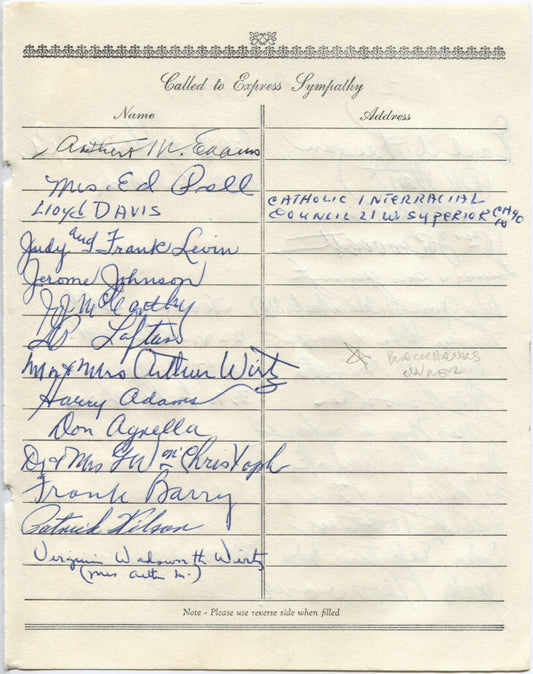 Called to Express Sympathy
Name Address
Arthur M. Evans
Mrs. Ed Prell
LLOYD DAVIS CATHOLIC INTERRACIAL
COUNCIL 21 W. SUPERIOR CHGO
Judy and Frank Levin
Jerome Johnson
J.J. McCarthy
Loftus
Mr & Mrs Arthur Wirtz
BLACKHAWKS
OWNER
Harry Adams
Don Agrella
Dr & Mrs
Frank Barry
Patrick Wilson
Virginia Wadsworth Wirtz
(Mrs Arthur M.)
Note - Please use reverse side when filled